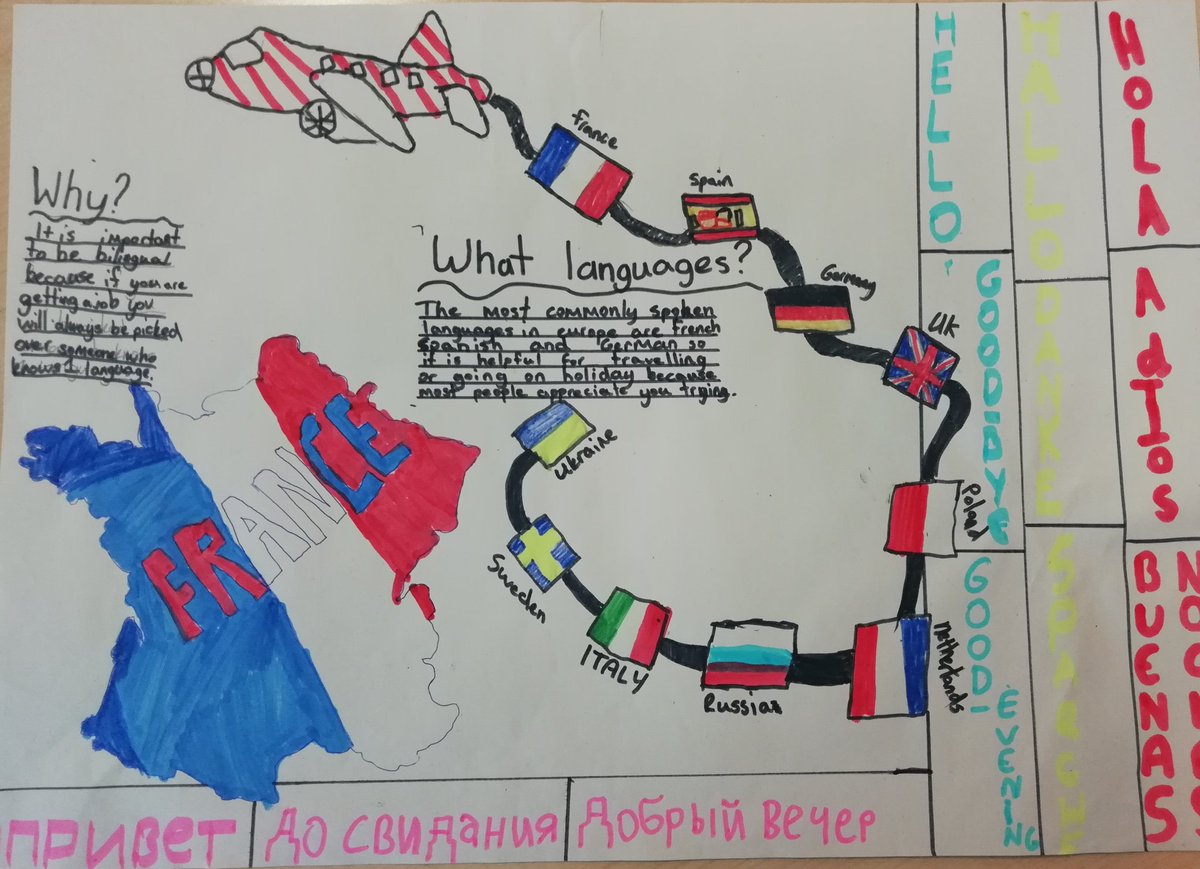 Why?
It is important
to be bilingual
because if you are
getting a job you
will always be picked
over someone who
knows 1 language.
france
Spain
Germany
UK
Polad
Netherlands
Russian
ITALY
Sweden
Ukraine
What languages?
The most commonly spoken
languages in europe are french
Spanish and German so
it is helpful for travelling
or going on holiday because
most people appreciate you trying.
FRANCE
HELLO
GOOD-DAYE
GOOD-
EVENING
HALLO
DANKE
HOLA
AdIos
BUENAS
NOCHES
привет
До свидания
Добрый вечер